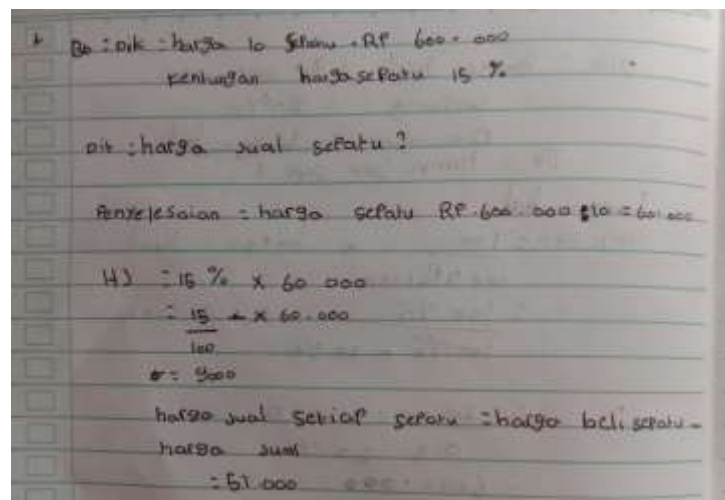 1 Dik : harga 10 sepatu . RP 600.000
kentungan harga sepatu 15 %
Dit : harga jual sepatu ?
Penyelesaian = harga sepatu RP.600.000 : 10 = 60.000
HJ = 15 % x 60 000
= 15/100 x 60.000
= 9000
harga jual setiap sepatu = harga beli sepatu -
harga jual
= 51.000